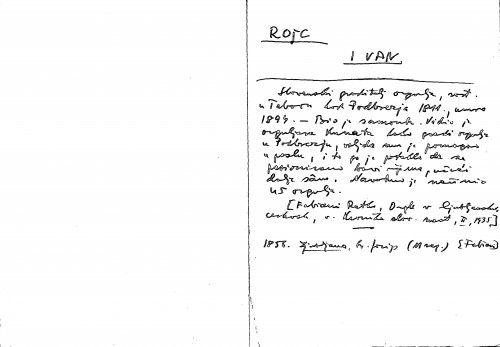 ROJC
IVAN
Slovenski graditelj orgulja, rođ.
u Taboru kod Podbrezja 1811., umro
1899. — Bio je samouk. Vidio je
orguljara Kunata kako gradi orgulje
u Podbrezju, valjda mu je pomagao
u poslu, i to ga je potaklo da se
bavi njima, učeći
dalje sam. Navodno je načinio
45 orgulja.
[Fabiani Ratko, Orgle v ljubljanskih
cerkvah, v. Kronika slov. mest, II, 1935.]
1856. Ljubljana, Sv. Josip (11 reg.) [Fabiani]